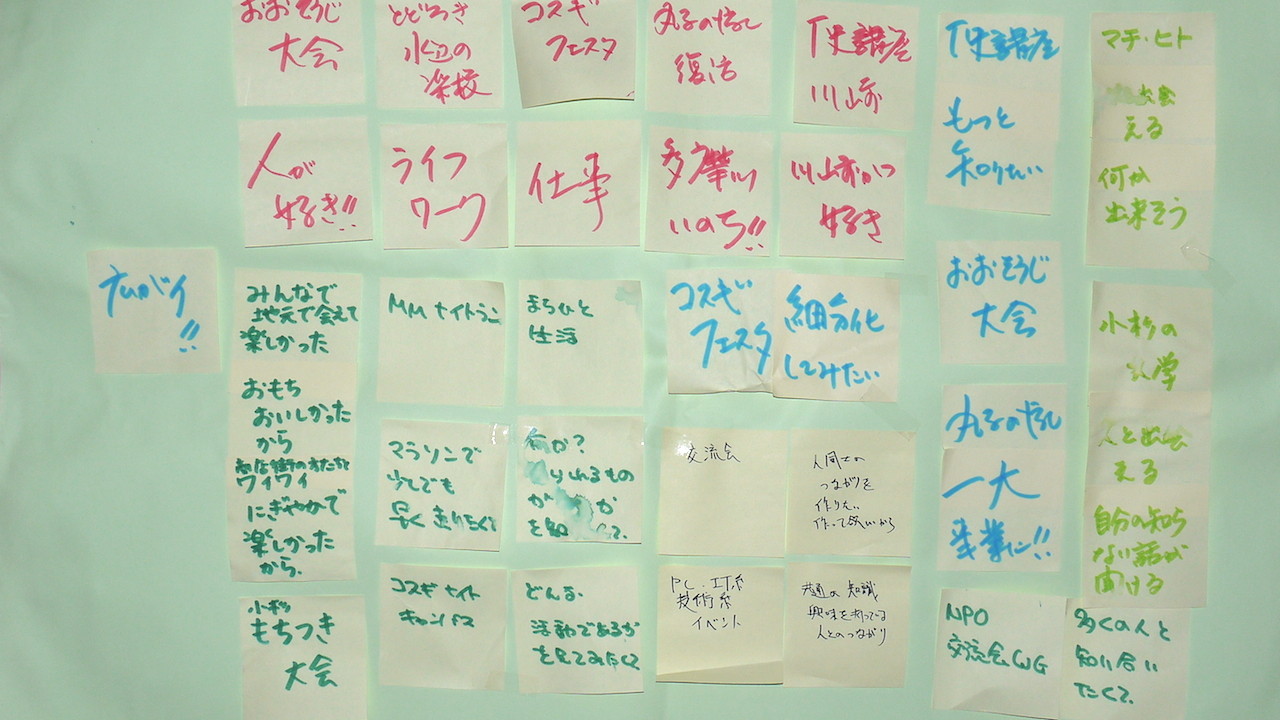 おおそうじ
大会
とどろき
水辺の
楽校
コスギ
フェスタ
丸子の渡し
復活
歴史講座
川崎
人が
好き!!
ライフ
ワーク
仕事
多摩川
いのち!!
川崎が
好き
歴史講座
もっと
知りたい
マチ・ヒト
出会
える
何か
出来そう
みんなで
地元で会えて
楽しかった
おもち
おいしかった
から
商店街の方たちと
ワイワイ
にぎやかで
楽しかった
から。
小杉
もちつき
大会
MMナイトラン
マラソンで
少しでも
早く走りたくて
コスギナイト
キャンパス
まちひと
生活
何か?
りれるもの
が
か
を知
て。
どんな
活動であるか
を見てみたくて
コスギ
フェスタ
細分化
してみたい
交流会
人同士の
つながりを
作りたい
作って欲しいから
PC・IT系
技術系
イベント
共通の知識
興味を持っている
人とのつながり
おおそうじ
大会
丸子の渡し
一大
産業に!!
NPO
交流会WG
多くの人と
知り合い
たくて。
小杉の
大学
人と出会
える
自分の知ら
ない話が
聞ける